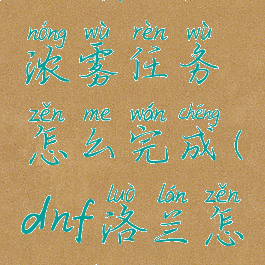 nóng wù rèn wù
浓雾任务
zěn me wán chéng
怎么完成(
luò lán zěn
dnf洛兰怎